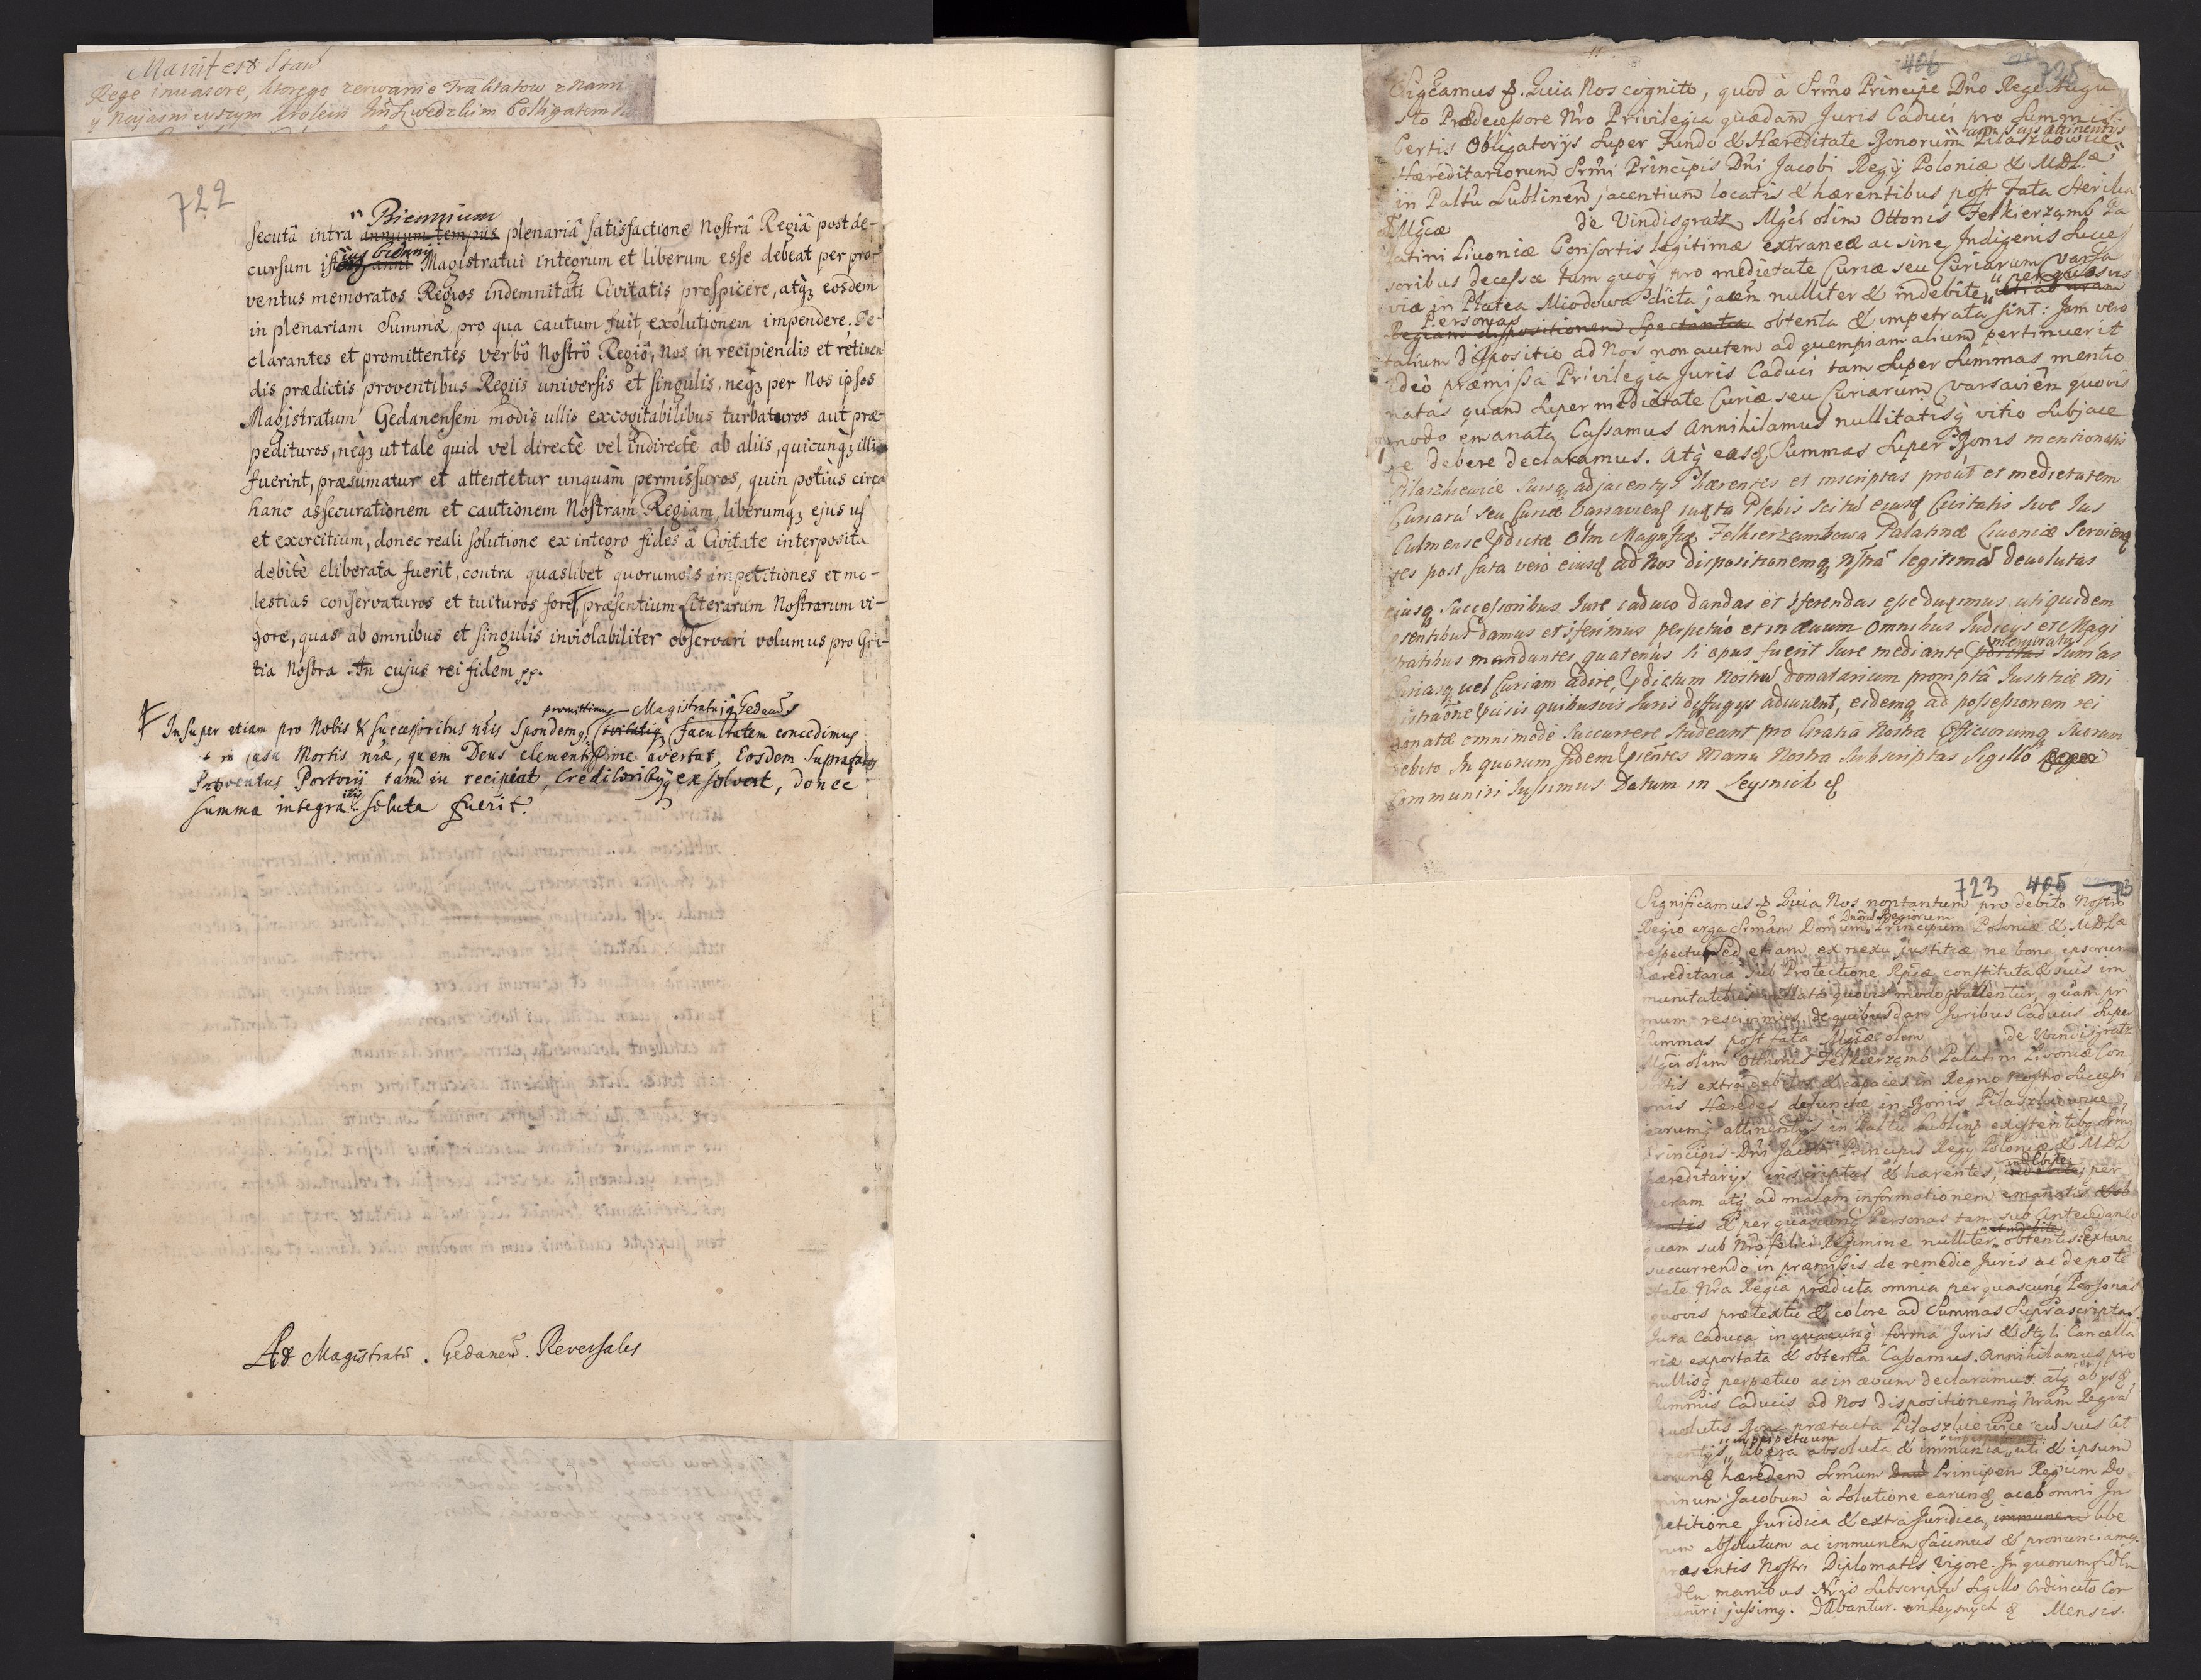 Manifest Stan
Rege invasore, ktorego zerwanie Traktatow z nami
y Nayiasnieyszym Krolem
722
Biennium
secutâ intrà annuum tempus plenariâ satisfactione Nostrâ Regiâ post de-
cursum Magistratui integrum et liberum esse debeat per pro-
ventus memoratos Regios indemnitati Civitatis prospicere, atq; eosdem
in plenariam Summæ pro qua cautum fuit, exolutionem impendere. De-
clarantes et promittentes verbô Nostrô Regiô, Nos in recipiendis et retinen
dis prædictis proventibus Regiis universis et singulis, neq; per Nos ipsos
Magistratum Gedanensem modis ullis excogitabilibus turbaturos aut præ-
pedituros, neq; ut tale quid vel directè vel indirectè ab aliis, quicunq; illi
fuerint, præsumatur et attentetur unquàm permissuros, quin potiùs circa
hanc assecurationem et cautionem Nostram Regiam, liberumq; ejus us
et exercitium, donec reali solutione ex integro fides â Civitate interposita
debitè eliberata fuerit, contra quaslibet quorumvis impetitiones et mo-
lestias conservaturos et tuituros fore, præsentium Literarum Nostrarum vi-
gore, quas ab omnibus et singulis inviolabiliter observari volumus pro Gra-
tia Nostra. In cujus rei fidem pp.
promittimus Magistratuiq Gedanens
Insuper etiam pro Nobis & successoribus nris Spondemq; Civitatiq; facultatem concedimus
in casu Mortis nræ, quem Deus clementissime avertat, Eosdem Suprafatos
Proventus Portorij tamdiu recipiat, Creditoribusq; exsolvat, donec
summa integra illis soluta fuerit.
Ad Magistratū. Gedanen. Reversales
406 725
Significamus &. Quia Nos cognito, quod à Srmo Principe Dno Rege Augu
sto Prædecessore Nro Privilegia quædam Juris Caduci pro Summis
cum suis attinentijs
Certis Obligatorijs super Fundo & Hæreditate Bonorum Pilaszkowice
Hæreditariorum Srmi Principis Dni Jacobi Regij Poloniæ & MDL
in Palttu Lublinen jacentium locatis & hærentibus post Fata Sterilia
Mgcæ de Vindisgratz Mgci olim Ottonis Felkierzamb Pa
latini Livoniæ Consortis legitimæ extraneæ ac sine Indigenis Succes
soribus decessæ tum quoq pro medietate Curiæ seu Curiarum Varsa
viæ in Platea Miodowa dicta jacen nulliter & indebite per quasvis
Personas
Regiam dispositionem Spectantia obtenta & impetrata sint: Jam vero
talium dispositio ad Nos non autem ad quempiam alium pertinuerit
Ideò præmissa Privilegia Juris Caduci tam super Summas mentio
natas quam super medietate Curiæ seu Curiarum Varsavien quovis
modo emanata Cassamus Annihilamus nullitatisq vitio subjace
re debere declaramus. Atq easq Summas super Bonis mentionatis
Pilaszkowice suisq adjacentijs hærentes et inscriptas prout et medietatem
Curiarū seu Curiæ Varsaviens juxta Plebis scitū eiusq Civitatis sive Ius
Culmense pdictæ olim Magnificæ Felkierzambowa Palatinæ Livoniæ Servien
tes post fata vero eiusq ad Nos dispositionemq nostrā legitimè devolutas
eiusq Successoribus Jure caduco dandas et conferendas esse duximus uti quidem
psentibus damus et conferimus perpetuò et in ævum Omnibus Judicijs et Magi
memoratas
stratibus mandantes quatenùs si opus fuerit Iure mediante Sumas
Curiasq vel Curiam adire, pdictum Nostrū donatarium promptâ Iustitiæ mi
nistratione pcisis quibusvis Juris diffugijs adiuvent, eidemq ad possessionem rei
donatæ omnimodè succurrere studeant pro Gratia Nostra Officiorumq Suorum
debito. In quorum fidem psentes Manu Nostra Subscriptas Sigillo Regni
Communiri Jussimus Datum in Leysnick &
723 405
Significamus & Quia Nos non tantum pro debito Nostro
Regio erga Srmam Domum Principum Poloniæ & MDLæ
respectu, sed etiam ex nexu justitiæ ne bona ipsorum
hæreditaria sub Protectione Rpcæ constituta & suis im
munitatibus quovis modo quam pri
mum rescivimus, de quibusdam Juribus Caducis super
Summas post fata Mgcæ olim de Vindisgratz
Mgci olim Ottonis Felkierzamb Palatini Livoniæ Con
tis extra debitos & capaces in Regno Nostro Successi
onis Hæredes defunctæ in Bonis Pilaszkowice
eorumq attinentijs in Palttu Lublin existentibq Srmi
Principis Dni Jacobi Principis Regij Poloniæ & MDL
indebite
hæreditarijs inscriptas & hærentes, per
peram atq ad malam informationem emanatis & ob
tentis & per quascunq Personas tam sub Antecedaneo
quam sub Nro felici Regimine nulliter obtentis extunc
succurrendo in præmissis de remedio Juris ac de pote
state Nra Regia prædicta omnia per quascunq Personas
quovis prætextu & colore ad Summas Suprascriptas
Jura Caduca in quacunq forma Juris & Styli Cancella
riæ exportata & obtenta Cassamus. Annihilamus pro
nullisq perpetuo ac in ævum declaramus. atq ab ijsq
Summis Caducis ad Nos dispositionemq Nram Regiā
devolutis Bona prætacta Pilaszkowice cū suis At
in perpetuum
tinentijs libera absoluta & immunia, uti & ipsum
eorunq hæredem Srmum Dnū Principem Regium Do
minum Jacobum à solutione earunq ac ab omni Im
petitione Juridica & extra Juridica, immunem libe
rum absolutum ac immunem facimus & pronunciamq
præsentis Nostri Diplomatis Vigore. In quorum fidem
manibus Nris Subscriptū Sigillo Ordinato Com
muniri jussimq. Dabantur in Leysnych & Mensis